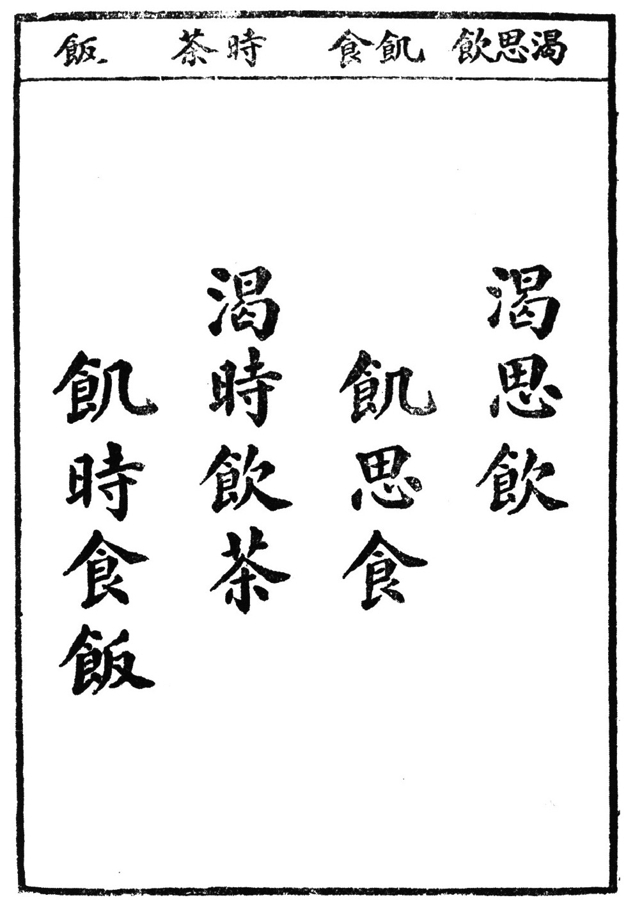 渴思飲
飢食
時茶
飯
渴思飲
飢思食
渴時飲茶
飢時食飯